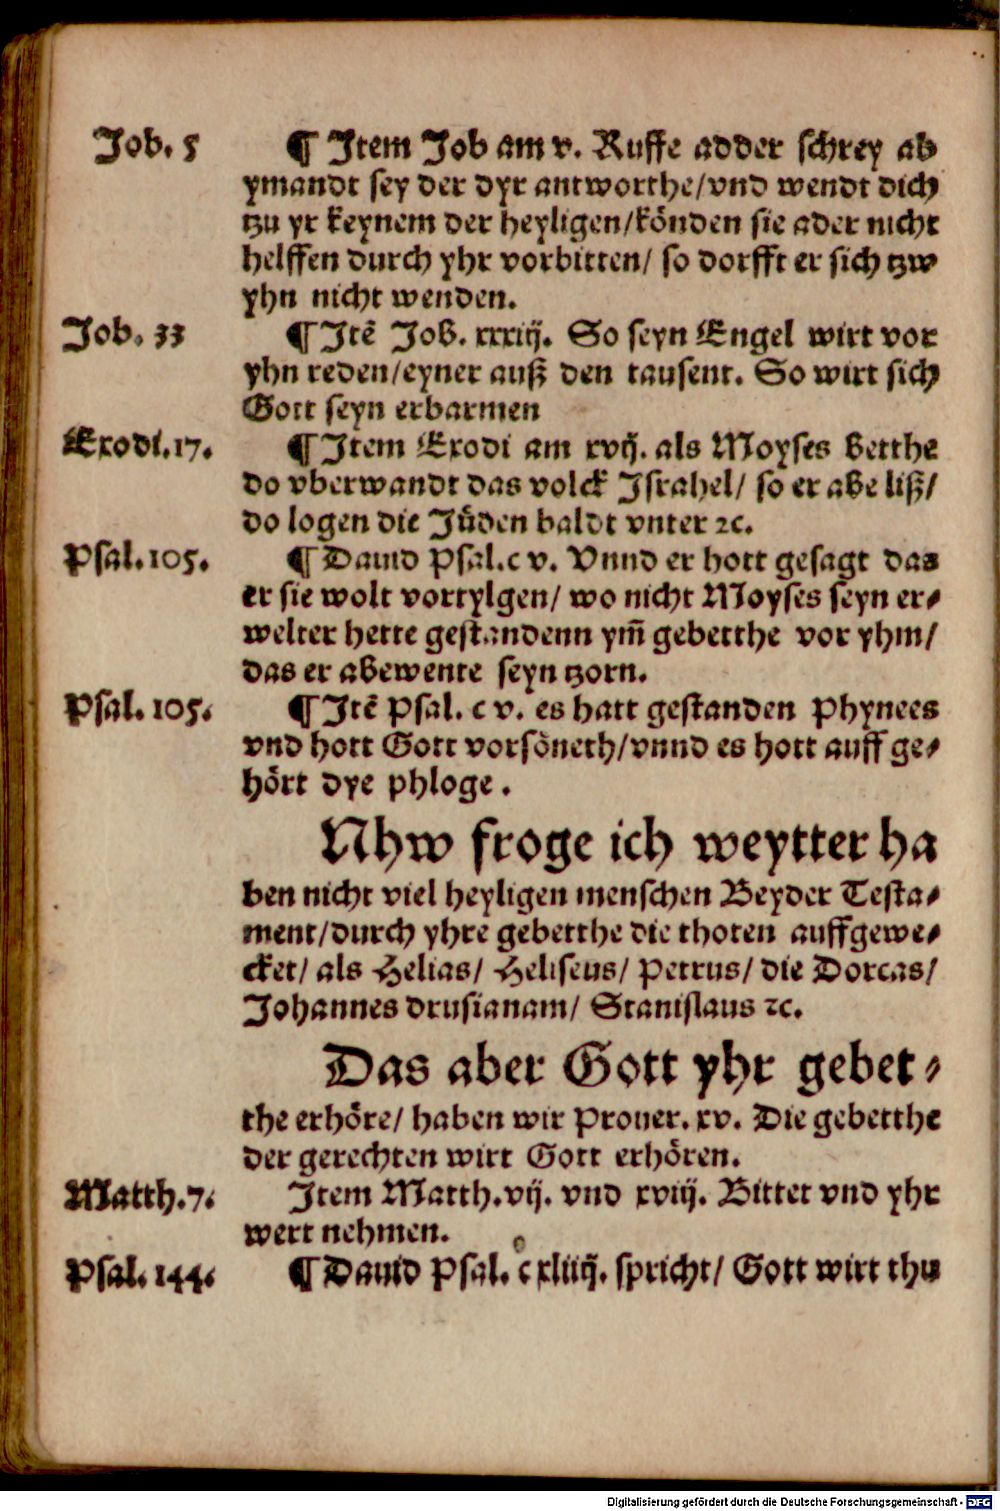 Job. 5
¶ Item Job am v. Ruffe adder schrey ab
ymandt sey der dyr antworthe/vnd wendt dich
tzu yr keynem der heyligen/könden sie ader nicht
helffen durch yhr vorbitten/ so dorfft er sich tzw
yhn nicht wenden.
Job. 33
¶ Itẽ Job. xxxiij. So seyn Engel wirt vor
yhn reden/eyner auß den tausent. So wirt sich
Gott seyn erbarmen
Exodi.17.
¶ Item Exodi am xvij. als Moyses betthe
do vberwandt das volck Israhel/ so er abe liß/
do logen die Jůden baldt vnter ꝛc.
Psal.105.
¶ Dauid Psal.c v. Vnnd er hott gesagt das
er sie wolt vortylgen/ wo nicht Moyses seyn er⸗
welter hette gestandenn ym̃ gebetthe vor yhm/
das er abewente seyn tzorn.
Psal.105.
¶ Itẽ Psal. c v. es hatt gestanden Phynees
vnd hott Gott vorsöneth/vnnd es hott auff ge⸗
hört dye phloge.
Nhw froge ich weytter ha
ben nicht viel heyligen menschen Beyder Testa⸗
ment/durch yhre gebetthe die thoten auffgewe⸗
cket/ als Helias/ Heliseus/ Petrus/ die Dorcas/
Johannes drusianam/ Stanislaus ꝛc.
Das aber Gott yhr gebet⸗
the erhöre/ haben wir Prouer. xv. Die gebetthe
der gerechten wirt Gott erhören.
Matth.7.
Item Matth.vij. vnd xviij. Bittet vnd yhr
wert nehmen.
Psal.144.
¶ Dauid Psal. c xliiij. spricht/ Gott wirt thu
Digitalisierung gefördert durch die Deutsche Forschungsgemeinschaft - DFG